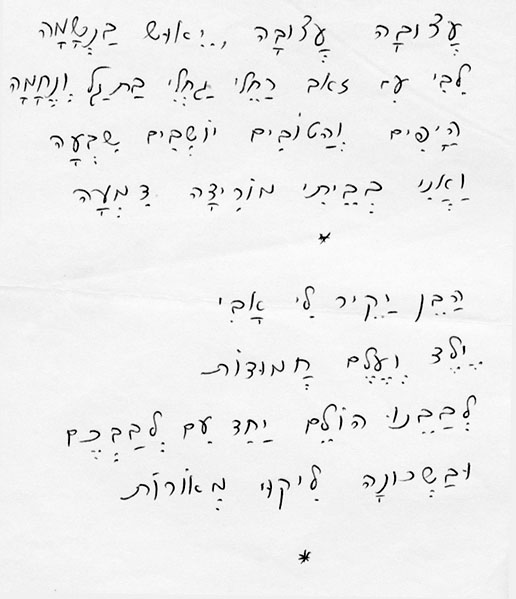 עֲצוּבָה עֲצוּבָה, יֵאוּש בַנְשָמָה
לִבִי עִם זאב רַחֵלִי בַת גַל וְנֶחָמָה
הַיָפִים וְהַטוֹבִים יוֹשְבִים שִבְעָה
וַאֲנִי בְבֵיתִי מוֹרִידָה דִמְעָה
*
הַבֵן יַקִיר לִי אָבִי
יֶלֶד וְעֶלֶם חֲמוּדוֹת
לְבָבֵנוּ הוֹלֵם יַחַד עִם לְבַבְכֶם
וּבַשְכוּנָה לִיקוּי מְאוֹרוֹת
*